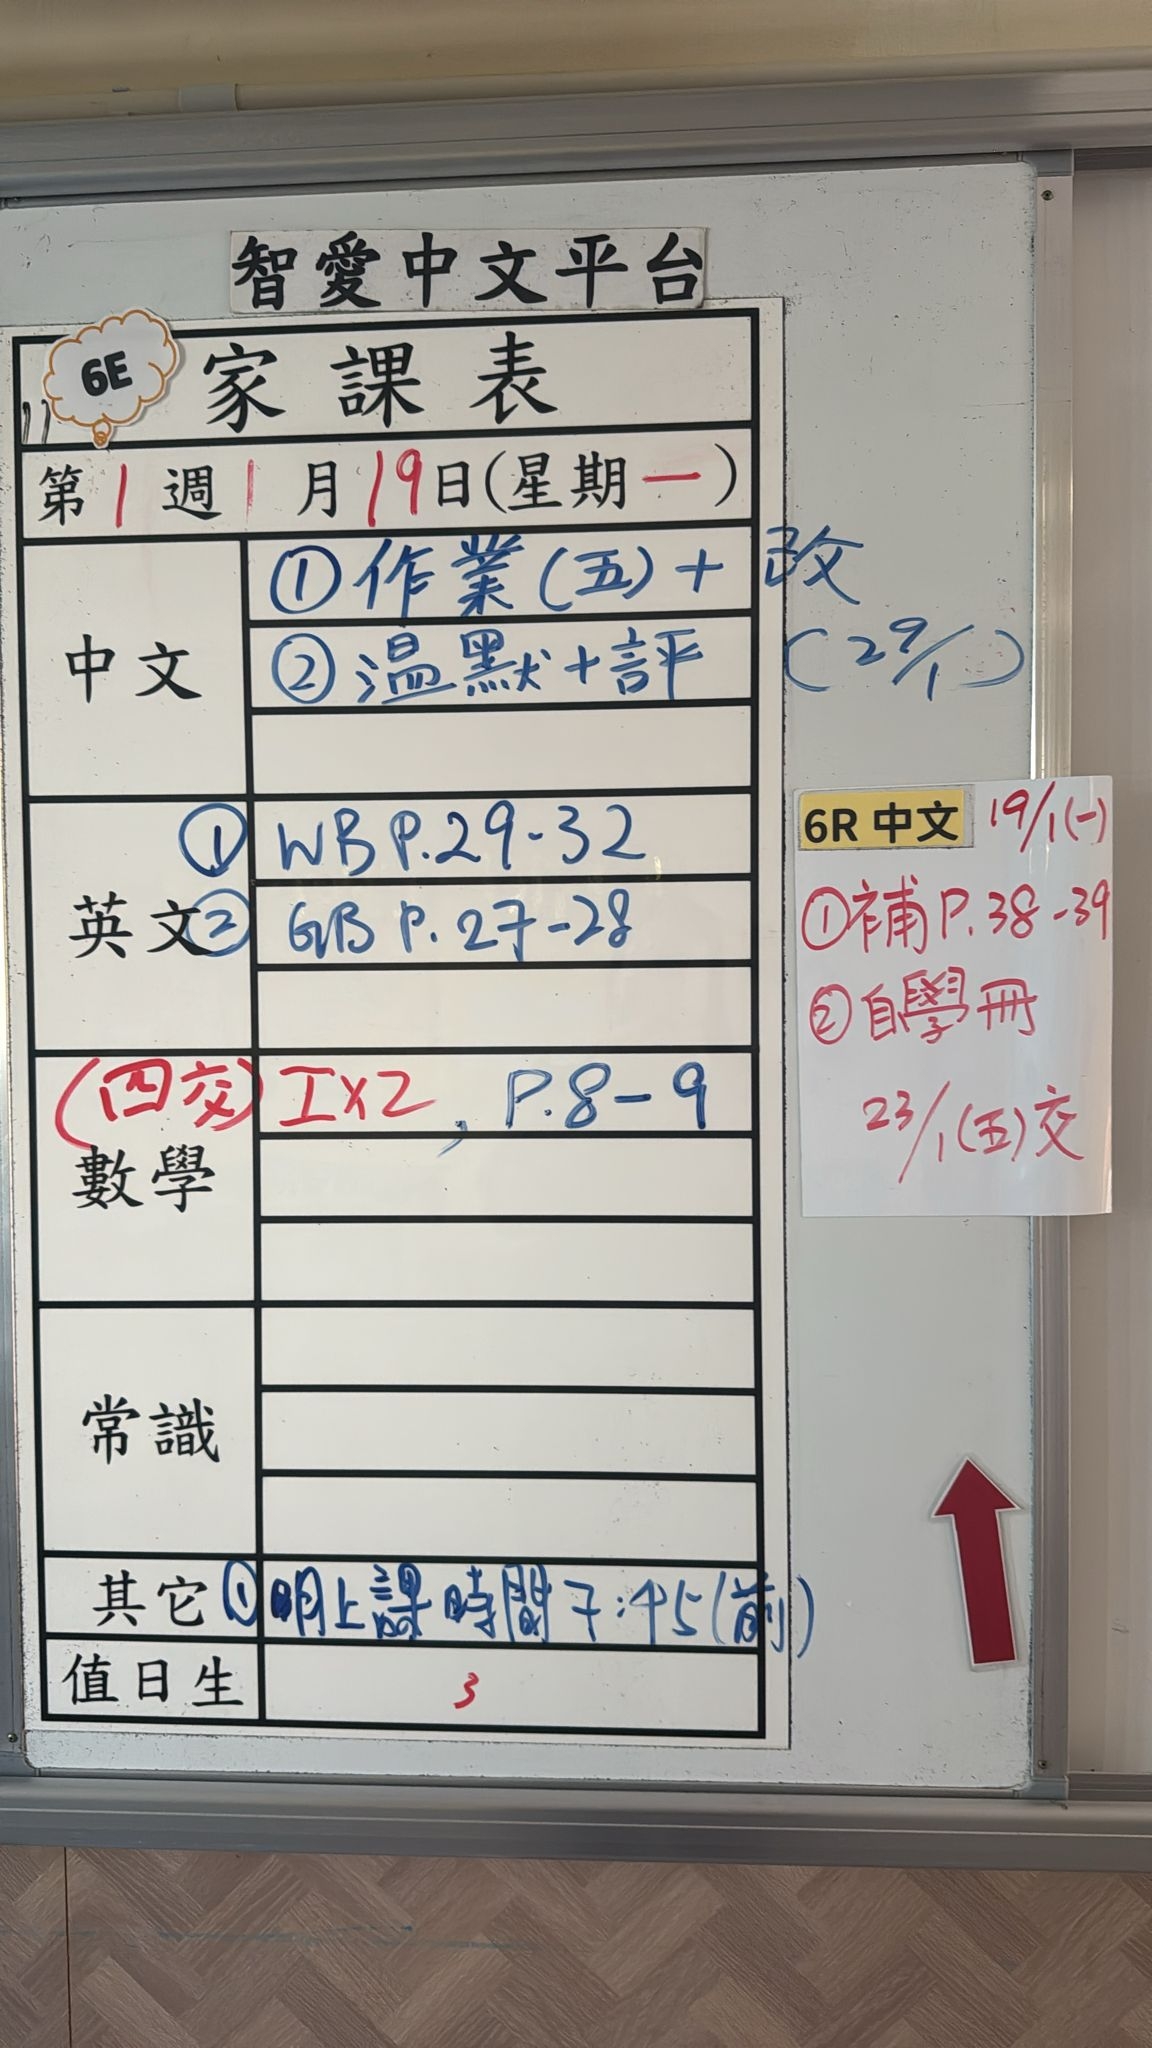 智愛中文平台
6E
家課表
第1週1月19日(星期一)
中文
①作業(五)+改
②溫默+評(29/1)
英文
①WB P.29-32
②GB P.27-28
數學
(四交)工x2, P.8-9
常識
其它
①明上課時間7:45(前)
值日生
3
6R 中文 19/1(一)
①補P.38-39
②自學冊
23/1(五)交